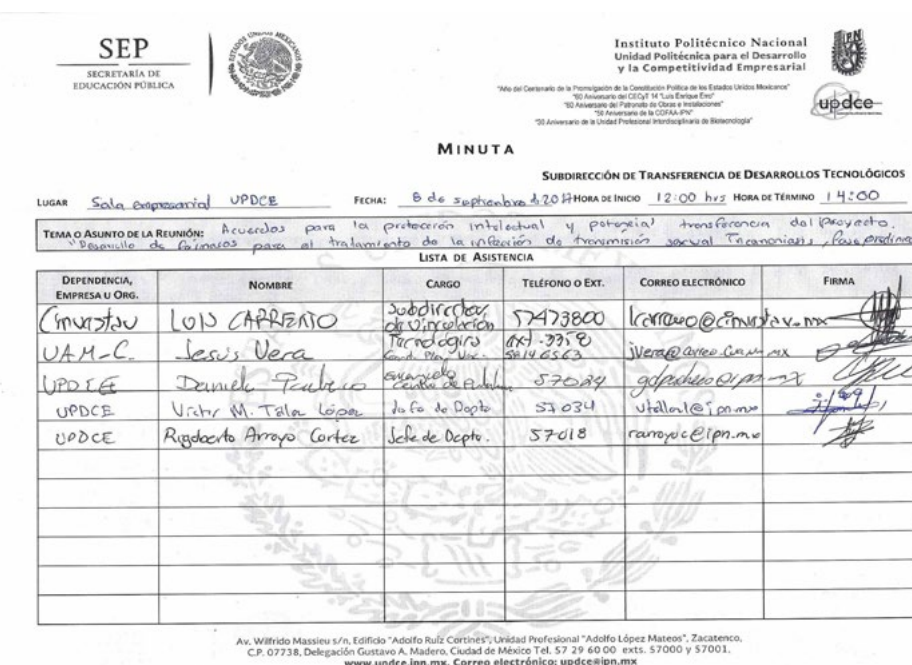 SEP
SECRETARÍA DE
EDUCACIÓN PÚBLICA
ESTADOS UNIDOS MEXICANOS
Instituto Politécnico Nacional
Unidad Politécnica para el Desarrollo
y la Competitividad Empresarial
"Año del Centenario de la Promulgación de la Constitución Política de los Estados Unidos Mexicanos"
"60 Aniversario del CECyT 14 "Luis Enrique Erro"
"60 Aniversario del Patronato de Obras e Instalaciones"
"50 Aniversario de la COFAA-IPN"
"30 Aniversario de la Unidad Profesional Interdisciplinaria de Biotecnología"
IPN
updce
MINUTA
SUBDIRECCIÓN DE TRANSFERENCIA DE DESARROLLOS TECNOLÓGICOS
LUGAR Sala empresarial UPDCE FECHA: 8 de septiembre d 2017 HORA DE INICIO 12:00 hrs HORA DE TÉRMINO 14:00
TEMA O ASUNTO DE LA REUNIÓN: Acuerdos para la protección intelectual y potencial transferencia del proyecto
"Desarrollo de fármacos para el tratamiento de la infección de transmisión sexual
LISTA DE ASISTENCIA
DEPENDENCIA, EMPRESA U ORG. NOMBRE CARGO TELÉFONO O EXT. CORREO ELECTRÓNICO FIRMA
Cinvestav LUIS CARREÑO Subdirector de Vinculación Tecnológica 57473800 ext. @cinvestav.mx
UAM-C. Jesús Vera
UPDCE Daniela Pacheco 57024
UPDCE Victor M. López Jefe de Depto 57034
UPDCE Rigoberto Arroyo Cortez Jefe de Depto. 57018 rarroyoc@ipn.mx
Av. Wilfrido Massieu s/n, Edificio "Adolfo Ruíz Cortines", Unidad Profesional "Adolfo López Mateos", Zacatenco,
C.P. 07738, Delegación Gustavo A. Madero, Ciudad de México Tel. 57 29 60 00 exts. 57000 y 57001.
www.updce.ipn.mx, Correo electrónico: updce@ipn.mx